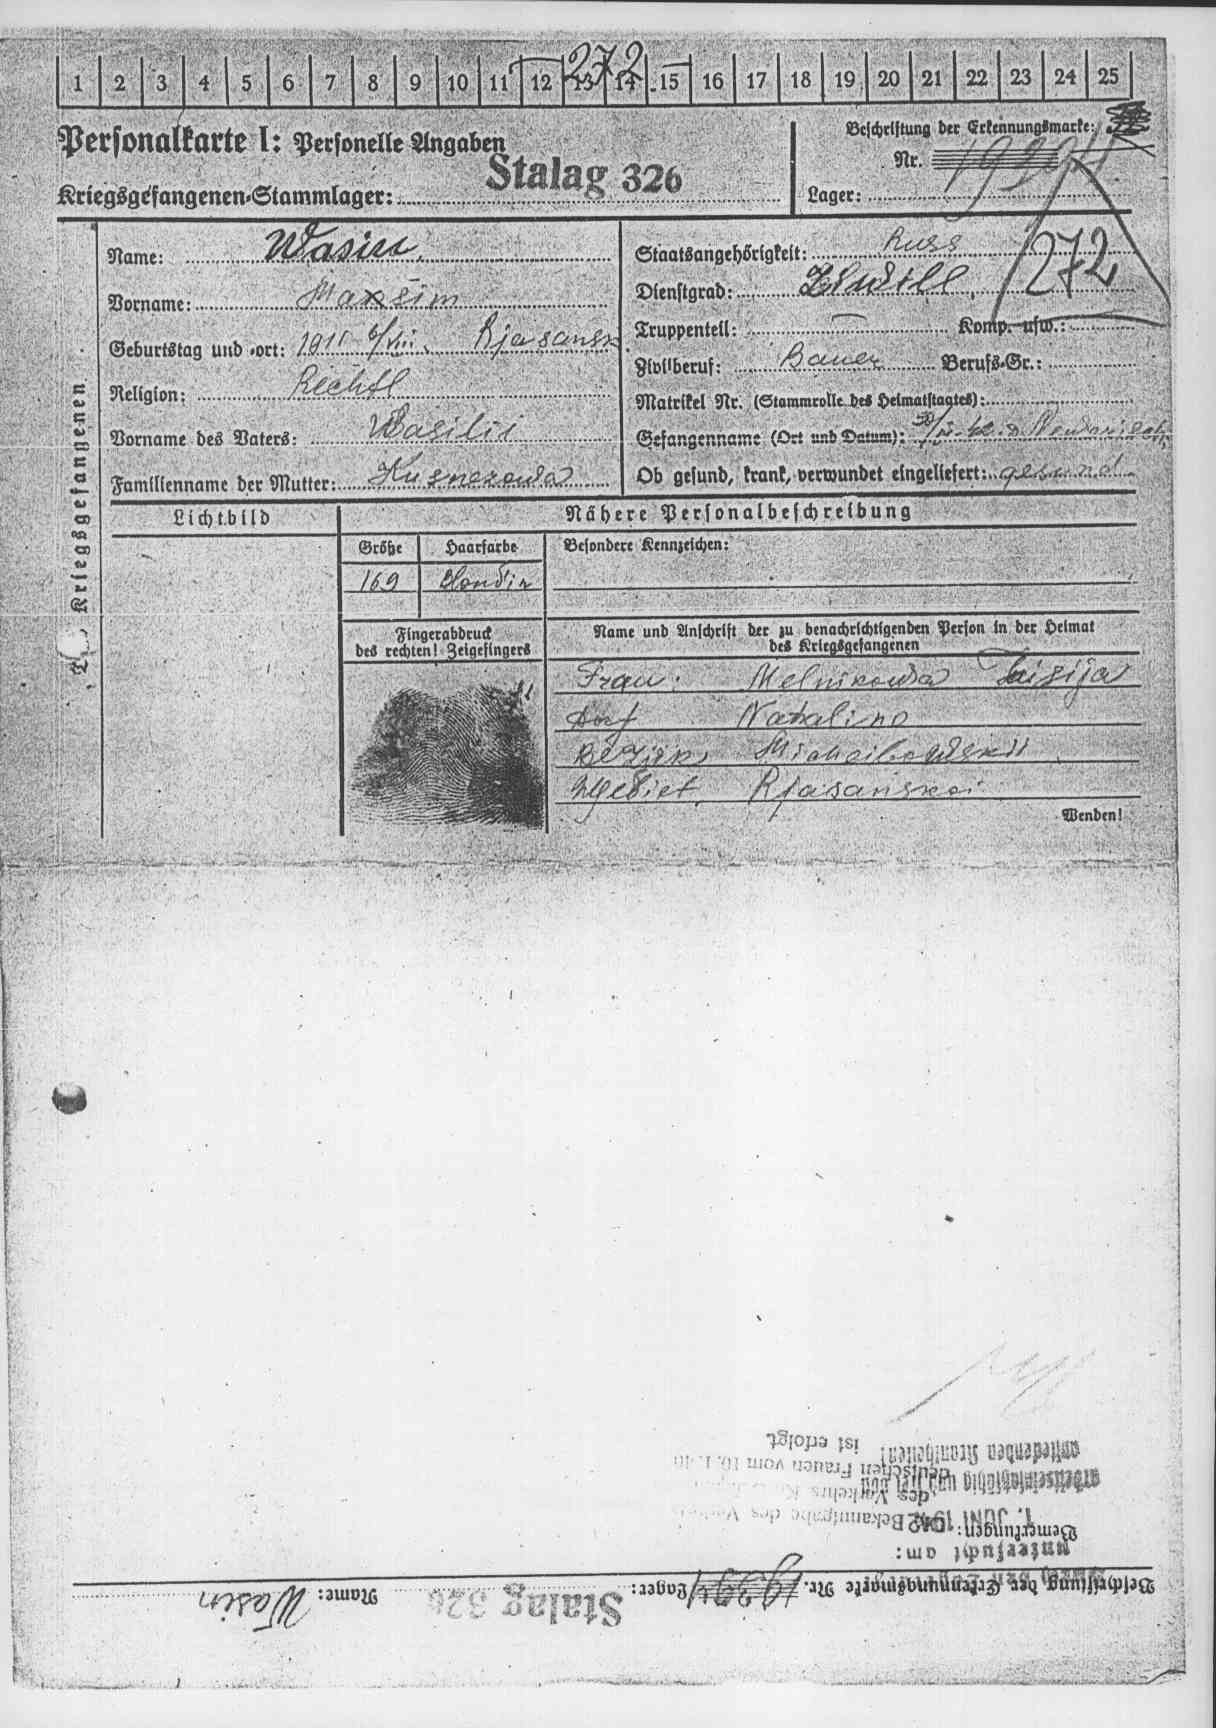 1 2 3 4 5 6 7 8 9 10 11 12 13 14 15 16 17 18 19 20 21 22 23 24 25
272
Personalkarte I: Personelle Angaben
Kriegsgefangenen-Stammlager: Stalag 326
Beschriftung der Erkennungsmarke:
Nr.
Lager:
272
Des Kriegsgefangenen
Name: Wasin
Vorname: Maxsim
Geburtstag und -ort: 1911 6/VIII. Rjasansk
Religion: Rechtl
Vorname des Vaters: Wasilii
Familienname der Mutter: Kusnezowa
Staatsangehörigkeit: Russ
Dienstgrad: Ziwill
Truppenteil: — Komp. usw.:
Zivilberuf: Bauer Berufs-Gr.:
Matrikel Nr. (Stammrolle des Heimatstaates):
Gefangenname (Ort und Datum):
Ob gesund, krank, verwundet eingeliefert: gesund
Lichtbild
Nähere Personalbeschreibung
Größe Haarfarbe Besondere Kennzeichen:
169 blondin
Fingerabdruck
des rechten! Zeigefingers
Name und Anschrift der zu benachrichtigenden Person in der Heimat
des Kriegsgefangenen
Frau: Melnikowa Taisija
Dorf Natalino
Bezirk Michailowskii
Gebiet Rjasanskoi
Wenden!
Beschriftung der Erkennungsmarke Nr. Lager: Stalag 326 Name: Wasin
untersucht am:
Bemerkungen: 1. JUNI 1942 Bekanntgabe des
des Verkehrs
arbeitseinsatzfähig und frei von
deutschen Frauen vom 10.1.40
ansteckenden Krankheiten! ist erfolgt